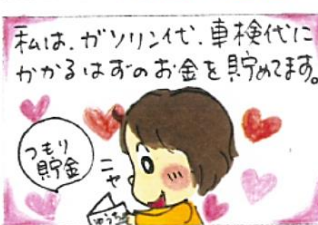 私は、ガソリン代、車検代に
かかるはずのお金を貯めてます。
つもり
貯金
ニヤ